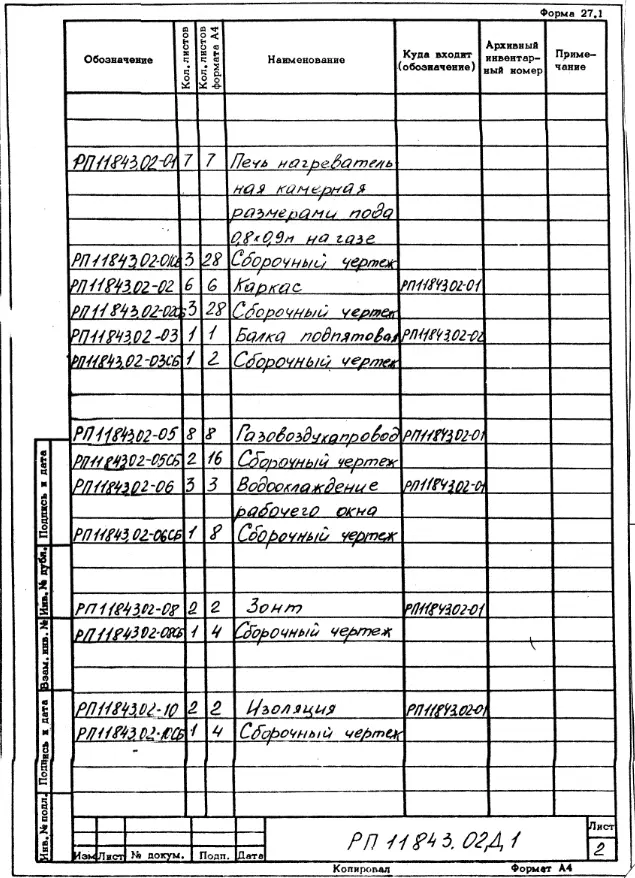 Форма 27.1
Обозначение Кол. листов Кол. листов формата А4 Наименование Куда входит (обозначение) Архивный инвентарный номер Примечание
РП11843.02-01 7 7 Печь нагреватель
ная камерная
размерами пода
0,8×0,9м на газе
РП11843.02-01СБ 3 28 Сборочный чертеж
РП11843.02-02 6 6 Каркас РП11843.02-01
РП11843.02-02СБ 3 28 Сборочный чертеж
РП11843.02-03 1 1 Балка подпятовая РП11843.02-02
РП11843.02-03СБ 1 2 Сборочный чертеж
РП11843.02-05 8 8 Газовоздухапровод РП11843.02-01
РП11843.02-05СБ 2 16 Сборочный чертеж
РП11843.02-06 3 3 Водоохлаждение РП11843.02-01
рабочего окна
РП11843.02-06СБ 1 8 Сборочный чертеж
РП11843.02-08 2 2 Зонт РП11843.02-01
РП11843.02-08СБ 1 4 Сборочный чертеж
РП11843.02-10 2 2 Изоляция РП11843.02-01
РП11843.02-10СБ 1 4 Сборочный чертеж
Инв.№ подл. Подпись и дата Взам. инв. № Инв.№ дубл. Подпись и дата
Изм Лист № докум. Подп. Дата
РП 11843.02Д1
Лист
2
Копировал Формат А4